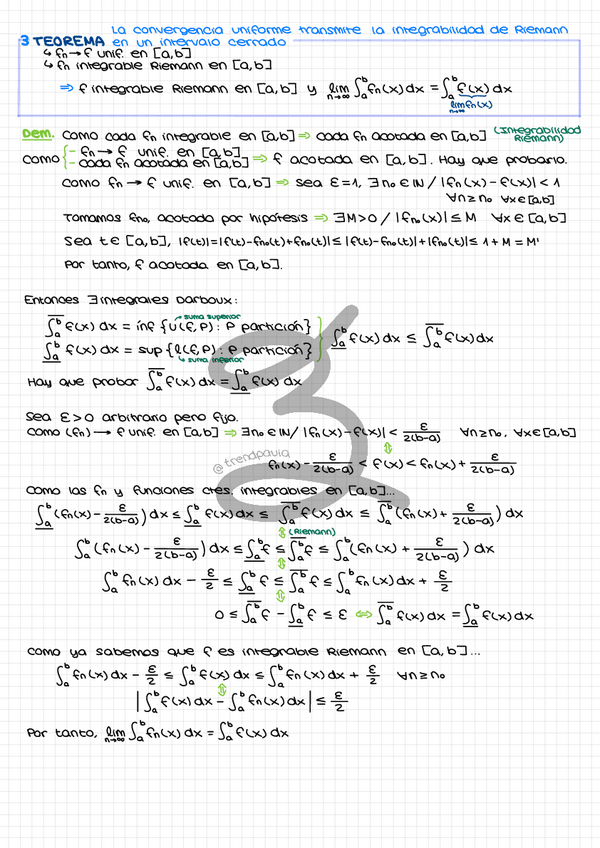 La convergencia uniforme transmite la integrabilidad de Riemann
3 TEOREMA en un intervalo cerrado
↳ fn → f unif. en [a,b]
↳ fn integrable Riemann en [a,b]
⇒ f integrable Riemann en [a,b] y lim n→∞ ∫ₐᵇ fn(x) dx = ∫ₐᵇ f(x) dx
lim fn(x)
n→∞
Dem. Como cada fn integrable en [a,b] ⇒ cada fn acotada en [a,b] (Integrabilidad Riemann)
Como { - fn → f unif. en [a,b]
- cada fn acotada en [a,b] ⇒ f acotada en [a,b]. Hay que probarlo.
Como fn → f unif. en [a,b] ⇒ sea ε=1, ∃n₀∈ℕ / |fn(x) - f(x)| < 1
∀n≥n₀ ∀x∈[a,b]
Tomamos fn₀, acotada por hipótesis ⇒ ∃M>0 / |fn₀(x)| ≤ M ∀x∈[a,b]
Sea t∈[a,b], |f(t)|=|f(t)-fn₀(t)+fn₀(t)| ≤ |f(t)-fn₀(t)|+|fn₀(t)| ≤ 1+M = M'
Por tanto, f acotada en [a,b].
Entonces ∃ integrales Darboux:
suma superior
∫̅ₐᵇ f(x) dx = ínf {U(f,P): P partición}
∫̲ₐᵇ f(x) dx = sup {L(f,P): P partición} } ∫̲ₐᵇ f(x) dx ≤ ∫̅ₐᵇ f(x) dx
suma inferior
Hay que probar ∫̅ₐᵇ f(x) dx = ∫̲ₐᵇ f(x) dx
Sea ε>0 arbitrario pero fijo.
Como (fn) → f unif. en [a,b] ⇒ ∃n₀∈ℕ / |fn(x)-f(x)| < ε/2(b-a) ∀n≥n₀, ∀x∈[a,b]
⇕
@trendpavia
fn(x) - ε/2(b-a) < f(x) < fn(x) + ε/2(b-a)
Como las fn y funciones ctes. integrables en [a,b]...
∫̲ₐᵇ (fn(x) - ε/2(b-a)) dx ≤ ∫̲ₐᵇ f(x) dx ≤ ∫̅ₐᵇ f(x) dx ≤ ∫̅ₐᵇ (fn(x) + ε/2(b-a)) dx
⇕ (Riemann)
∫ₐᵇ (fn(x) - ε/2(b-a)) dx ≤ ∫̲ₐᵇ f ≤ ∫̅ₐᵇ f ≤ ∫ₐᵇ (fn(x) + ε/2(b-a)) dx
⇕
∫ₐᵇ fn(x) dx - ε/2 ≤ ∫̲ₐᵇ f ≤ ∫̅ₐᵇ f ≤ ∫ₐᵇ fn(x) dx + ε/2
⇕
0 ≤ ∫̅ₐᵇ f - ∫̲ₐᵇ f ≤ ε ⇔ ∫̅ₐᵇ f(x) dx = ∫̲ₐᵇ f(x) dx
Como ya sabemos que f es integrable Riemann en [a,b]...
∫ₐᵇ fn(x) dx - ε/2 ≤ ∫ₐᵇ f(x) dx ≤ ∫ₐᵇ fn(x) dx + ε/2 ∀n≥n₀
⇕
|∫ₐᵇ f(x) dx - ∫ₐᵇ fn(x) dx| ≤ ε/2
Por tanto, lim n→∞ ∫ₐᵇ fn(x) dx = ∫ₐᵇ f(x) dx